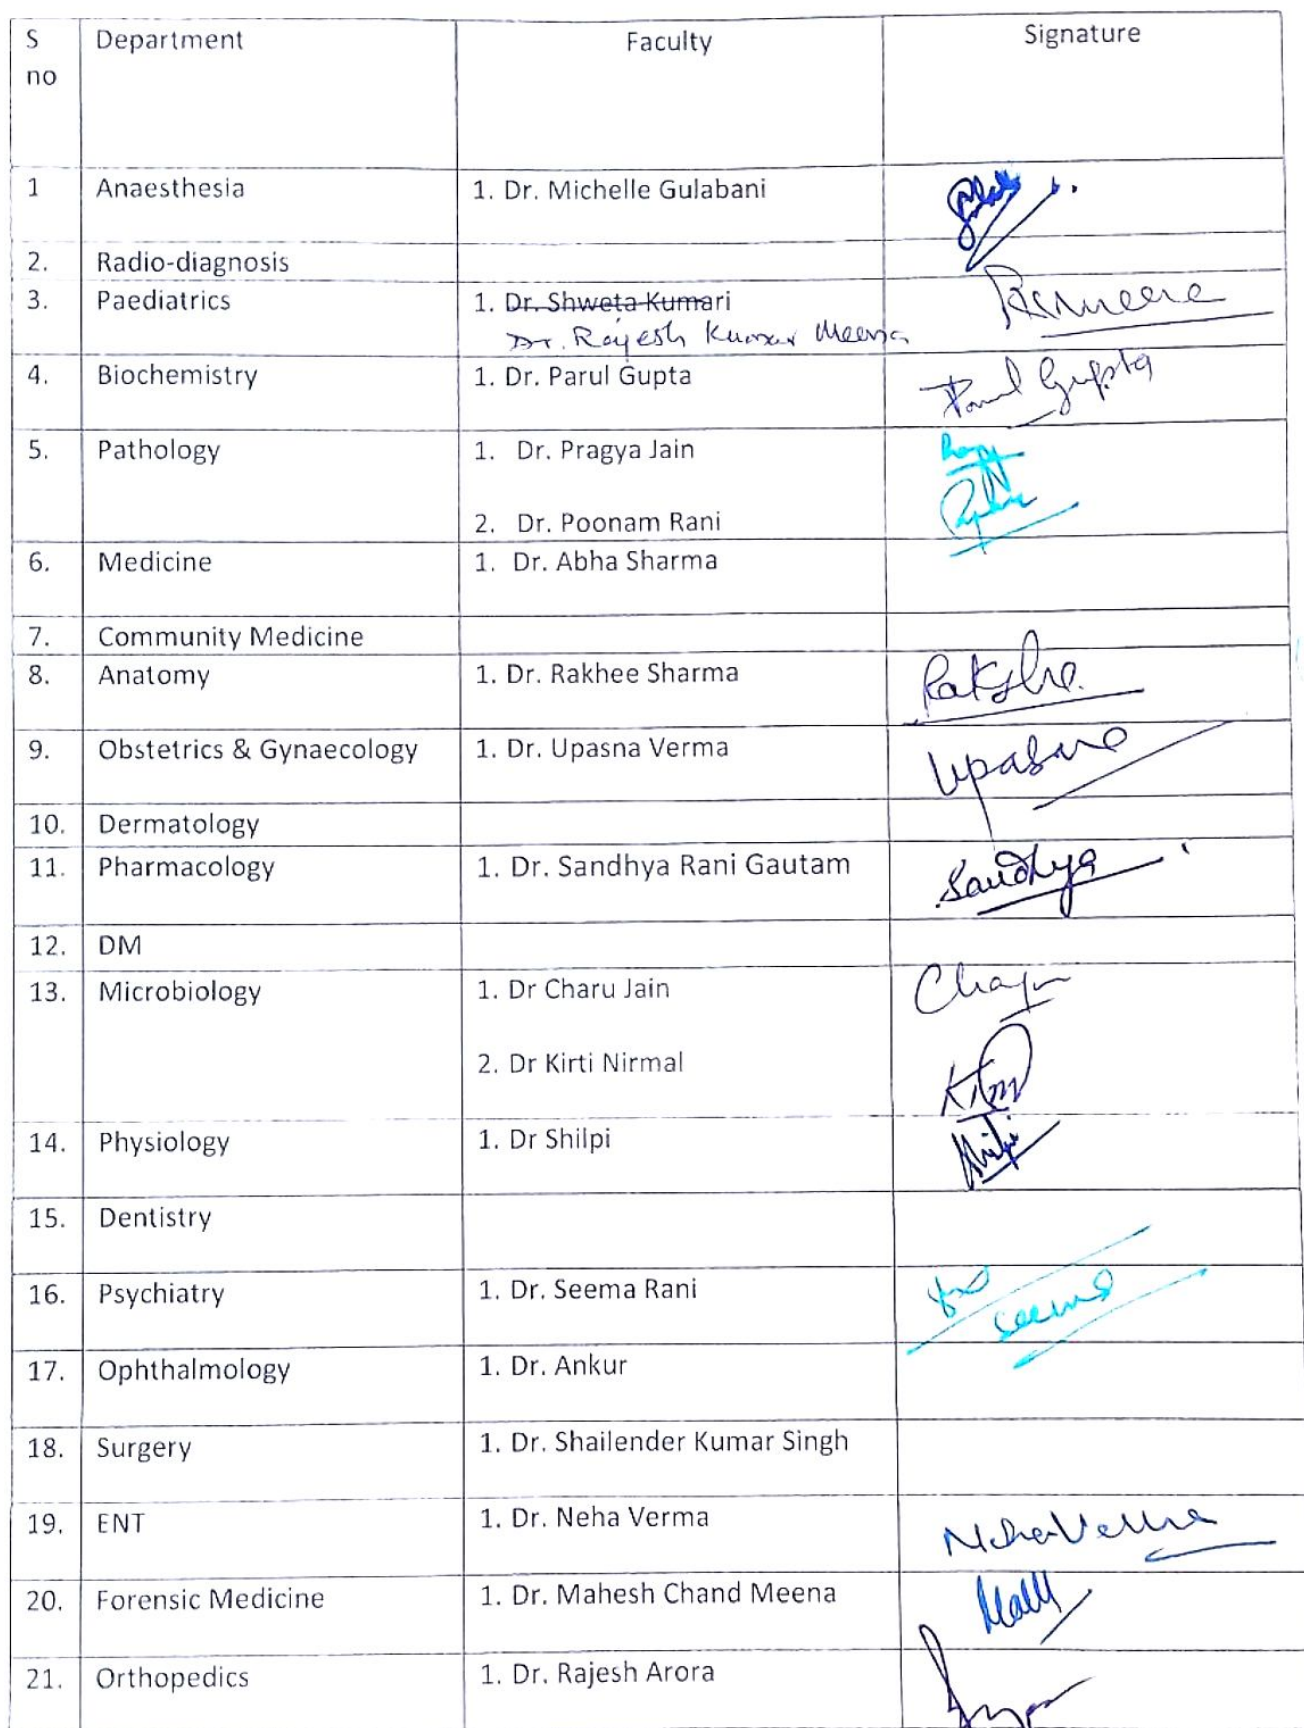 S no Department Faculty Signature
1 Anaesthesia 1. Dr. Michelle Gulabani
2. Radio-diagnosis
3. Paediatrics 1. Dr. Shweta Kumari RKMeena
Dr. Rajesh Kumar Meena
4. Biochemistry 1. Dr. Parul Gupta Parul Gupta
5. Pathology 1. Dr. Pragya Jain
2. Dr. Poonam Rani
6. Medicine 1. Dr. Abha Sharma
7. Community Medicine
8. Anatomy 1. Dr. Rakhee Sharma
9. Obstetrics & Gynaecology 1. Dr. Upasna Verma Upasna
10. Dermatology
11. Pharmacology 1. Dr. Sandhya Rani Gautam Sandhya
12. DM
13. Microbiology 1. Dr Charu Jain
2. Dr Kirti Nirmal
14. Physiology 1. Dr Shilpi Shilpi
15. Dentistry
16. Psychiatry 1. Dr. Seema Rani Seema
17. Ophthalmology 1. Dr. Ankur
18. Surgery 1. Dr. Shailender Kumar Singh
19. ENT 1. Dr. Neha Verma Neha Verma
20. Forensic Medicine 1. Dr. Mahesh Chand Meena
21. Orthopedics 1. Dr. Rajesh Arora